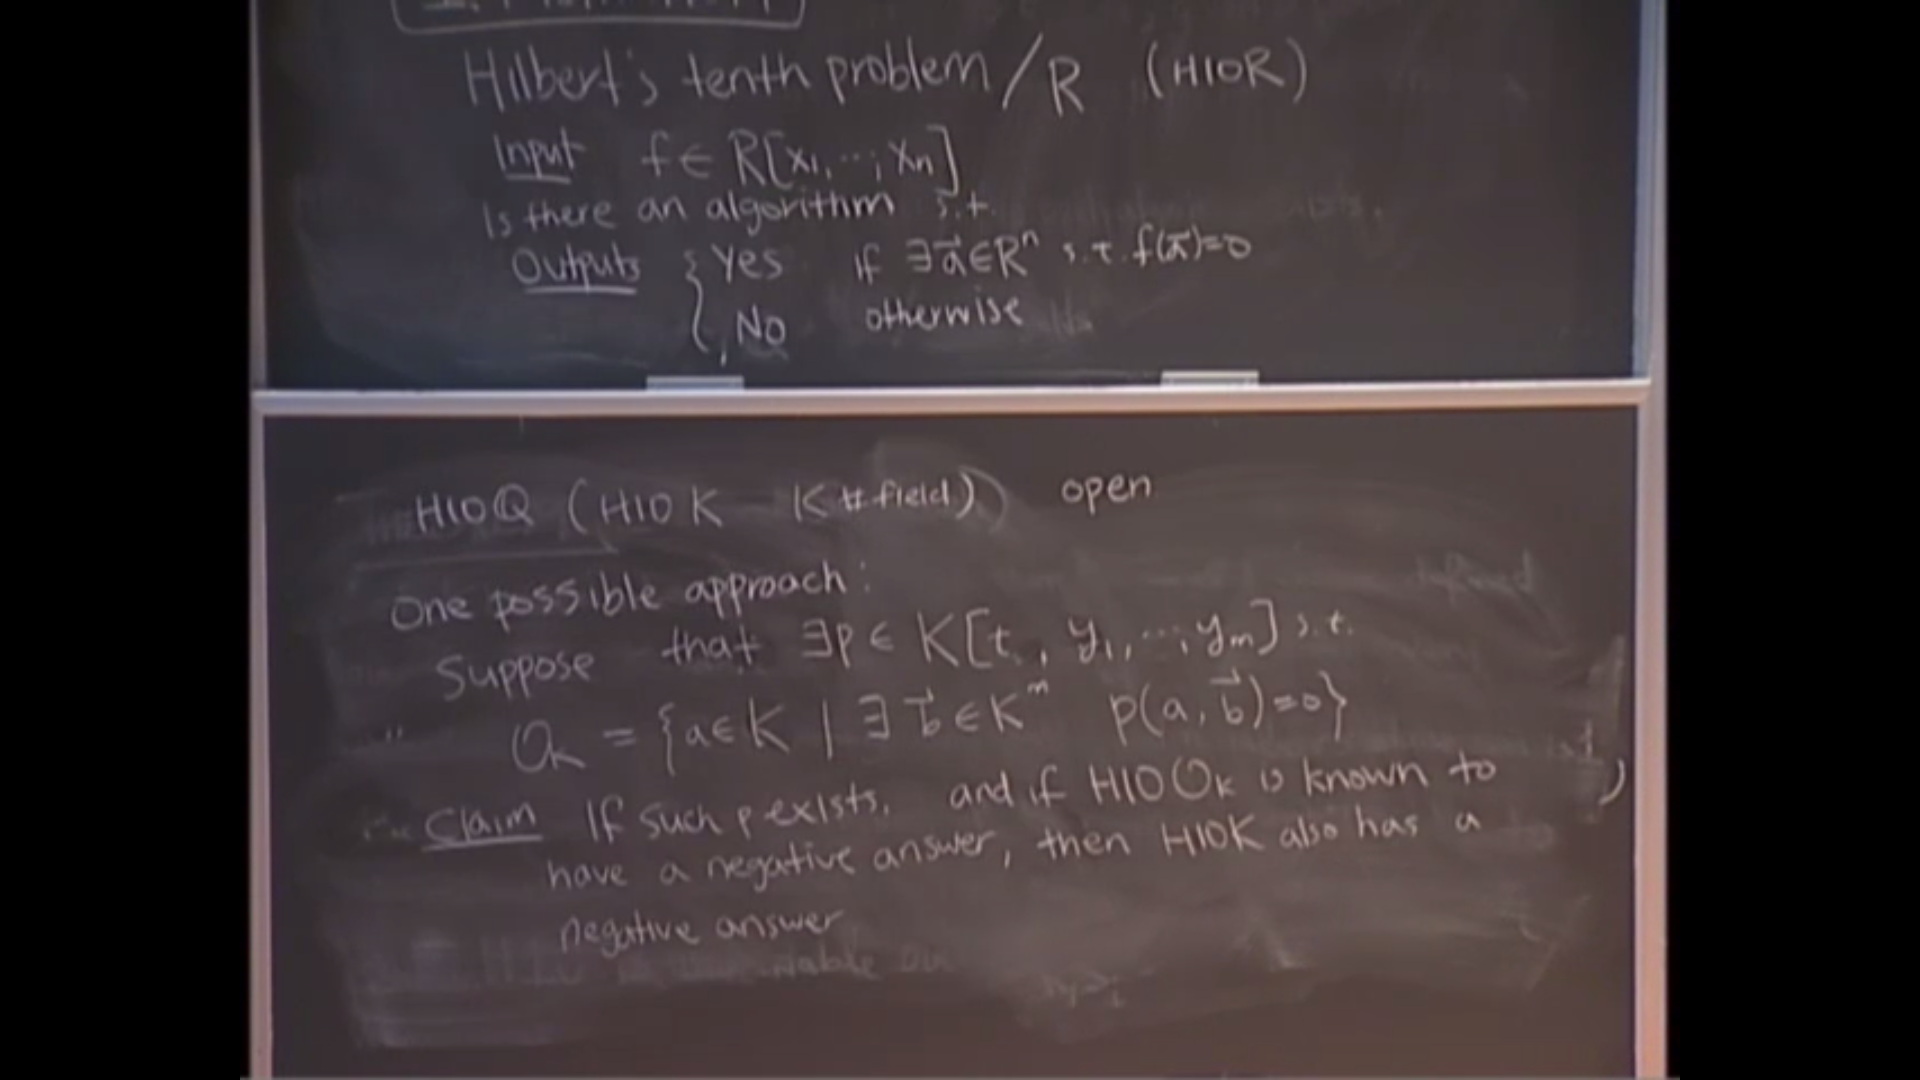 Hilbert's tenth problem / R (H10R)
Input f ∈ R[x₁, ..., xₙ]
Is there an algorithm s.t.
Outputs { Yes if ∃a⃗∈Rⁿ s.t. f(a⃗)=0
No otherwise
H10Q (H10K K #field) open
One possible approach:
Suppose that ∃p ∈ K[t, y₁, ..., yₘ] s.t.
O_K = {a∈K | ∃ b⃗ ∈ Kᵐ p(a, b⃗)=0}
Claim If such p exists, and if H10 O_K is known to
have a negative answer, then H10K also has a
negative answer